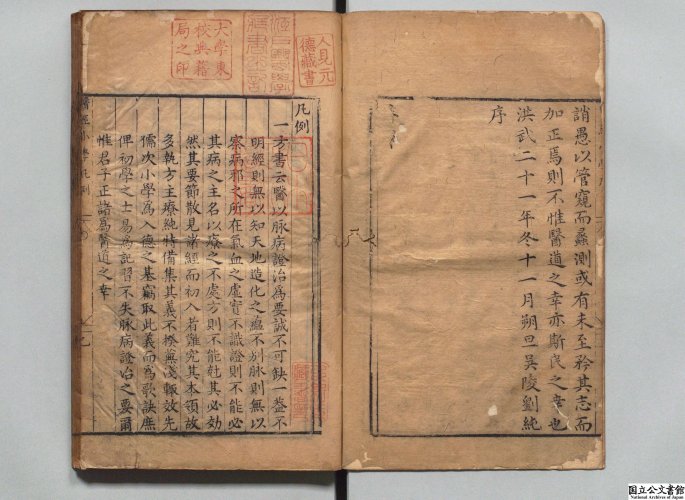 誚愚以管窺而蠡測或有未至矜其志而
加正焉則不惟醫道之幸亦斯民之幸也
洪武二十一年冬十一月朔旦吳陵劉純
序
大學東
校典籍
局之印
人見元
德藏書
凡例
一方書云醫以脉病證治為要誠不可缺一蓋不
明經則無以知天地造化之蘊不別脉則無以
察病邪之所在氣血之虛實不識證則不能必
其病之主名以療之不處方則不能尅其必効
然其要節散見諸經而初入者難究其本領故
多執方主療純特備集其義不揆無淺輒效先
儒次小學為入德之基竊取此義而為歌訣庶
俾初學之士易為記習不失脉病證治之要爾
惟君子正諸為醫道之幸
醫經小學凡例
国立公文書館
National Archives of Japan